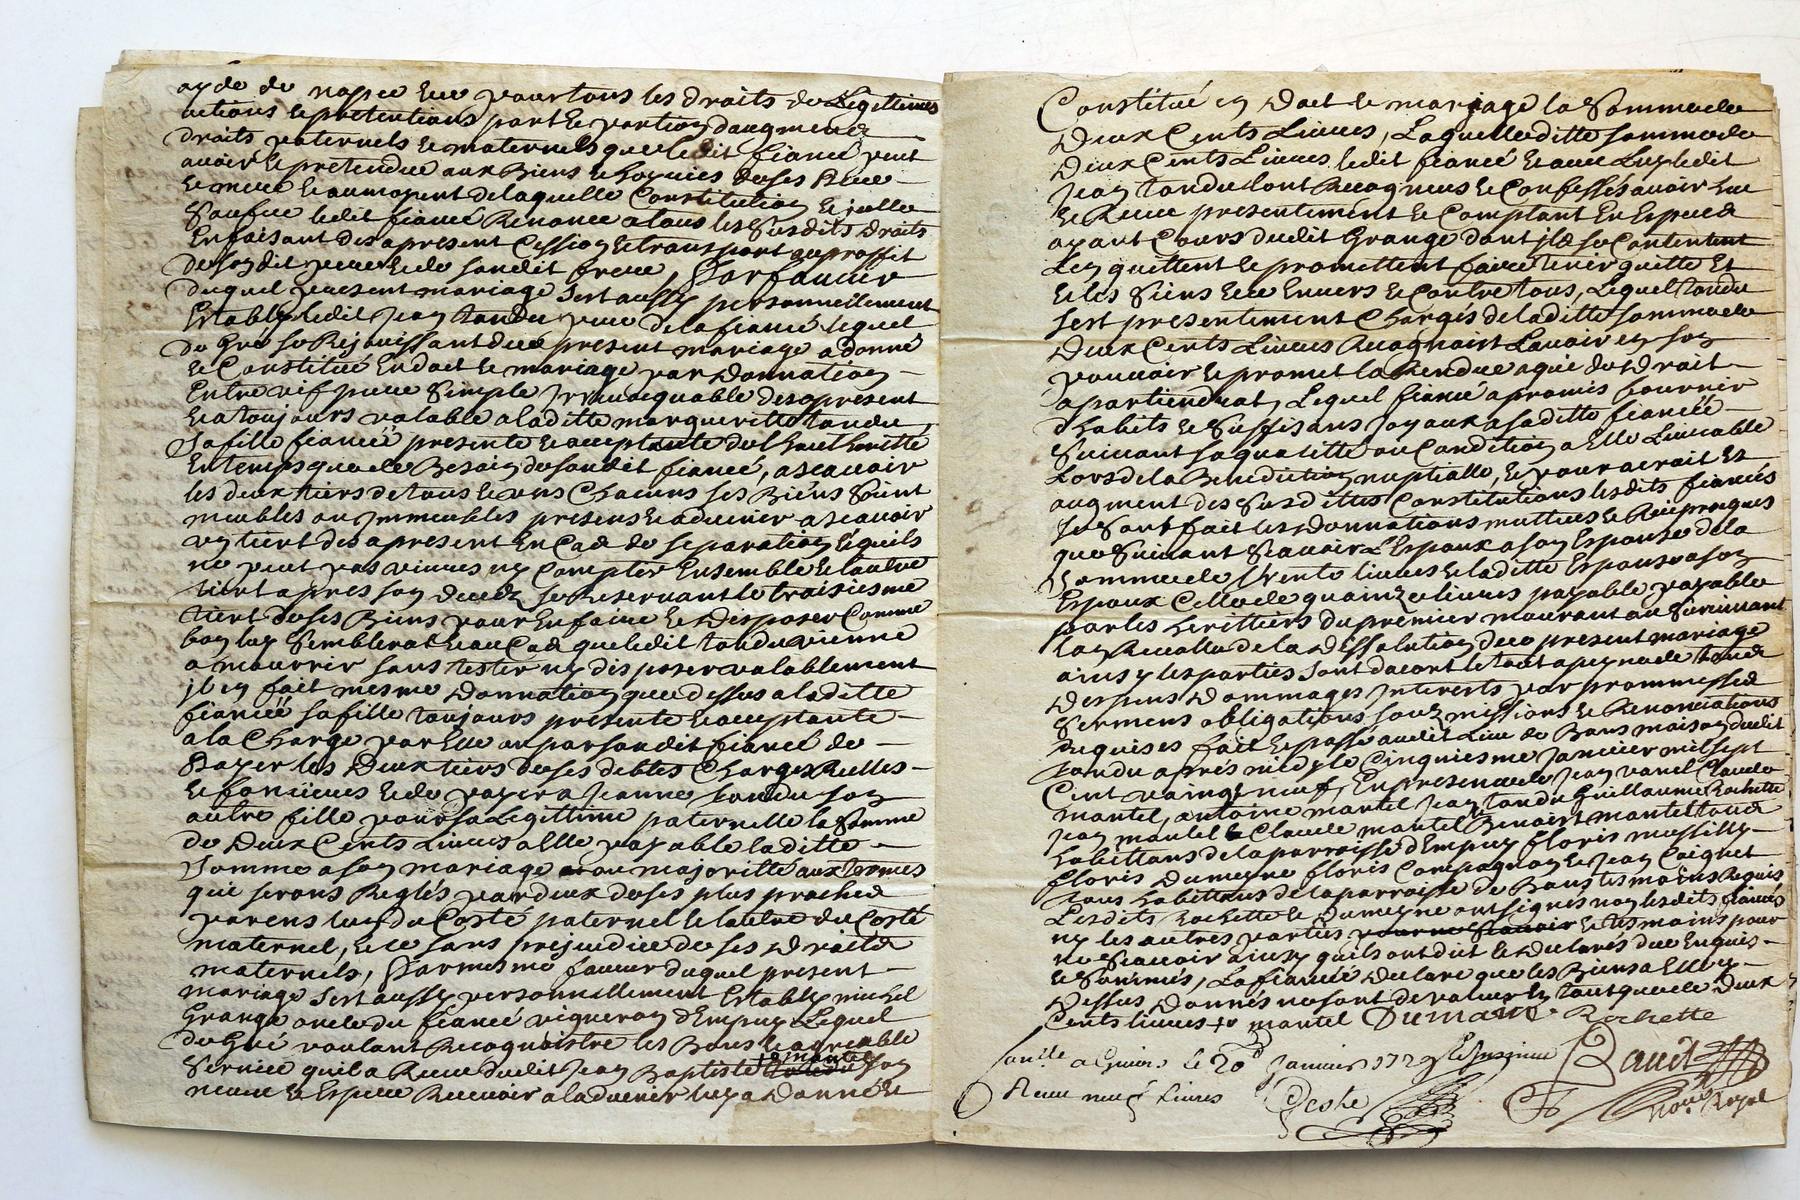 ayde de nopce Ere pour tous les droits de Legittimes
actions et pretentions part et portion daugment
droits paternels et maternels que ledit fiancé peut
avoir et pretendre aux Biens et hoyries de ses Pere
et mere et au moyent de laquelle Constitution et jcelle
Saufue ledit fiancé Renonce a tous les Susdits droits
En faisant des apresent Cession et transport au proffit
de sondit pere et de sondit frere, Par faueur
duquel present mariage sert aussy personnellement
Estably ledit Jean tondu pere de la fiancé lequel
de Gre se Rejouissant du present mariage a donné
et Constitué En dot et mariage par Donnation
Entre vif pure Simple Irreuoquable des apresent
et a toujours valable a laditte margueritte tondu
Sa fille fianceé presente et acceptante de l'hauthoritté
En temps que de Besoin de sondit fiancé, a scauoir
les deux tiers de tous et uns Chacuns ses Biens Soint
meubles ou Jmmeubles presens et aduenir a scauoir
vn tiert des apresent En Cas de separation et quils
ne peut pas viures ny Compter Ensemble et lautre
tiert apres son decedz se Reseruant le troisiesme
tiert de ses Biens pour En faire et Disposer Comme
bon luy Semblerat et au Cas que ledit tondu vienne
a mourrir sans tester ny disposer valablement
jl En fait mesme Donnation que dessus a laditte
fianceé sa fille toujours presente et acceptante
a la Charge par Elle ou par sondit fiancé de
Payer les Deux tiers de ses debtes Charges Reelles
et foncieres et de payer a Jeanne tondu son
autre fille pour sa Legittime paternelle la Somme
de Deux Cents Liures a Elle payable laditte
Somme a son mariage ou majoritté aux termes
qui serons Reglés par deux de ses plus proches
parens lun du Costé paternel et lautre du Costé
maternel, et ce sans prejudice de ses Droits
maternels, Par mesme faueur duquel present
mariage sert aussy personnellement Estably michel
Grange oncle du fiancé vigneron d'Empuy Lequel
de Gré voulant Recognoistre les Bons et agreable
Seruice quil a Receu dudit Jean Baptiste mantel son
neueu et Espere Receuoir a laduenir luy a Donné et
Constitué En Dot et mariage la Somme de
Deux Cents Liures, Laquelle ditte somme de
Deux Cents Liures ledit fiancé et auec Luy ledit
Jean tondu sont Recogneus et Confessés auoir Eue
et Receu presentement et Comptant En Especes
ayant Cours dudit Grange dont jls se Contentent
Len quittent et promettent faire tenir quitte Et
et les Siens Ere Enuers et Contre tous, Lequel tondu
sert presentement Chargé de laditte somme de
Deux Cents Liures Recognoit Lauoir En son
pouuoir et promet la Rendre a qui de Droit
apartiendrat, Lequel fiancé a promis fournir
d'habits et Suffisans Joyaux a saditte fianceé
Suiuant sa qualitté ou Condition a Elle Liurable
Lors de la Benediction nuptialle, et pour acroit Et
augment des Susdittes Constitutions lesdits fiancés
se Sont fait les Donnations mutuels et Reciproques
que Suiuant Scauoir L'Espoux a son Espouse de la
Somme de trente liures et laditte Espouse a son
Espoux Celle de quainze liures payable payable
par les heritiers du premier mourant au Suruiuant
de la Dissolution de ce present mariage
ainsy les parties sont dacort et tout a peyne de tous
Despens Dommages Interests par prommesses
Sermens obligations soubmissions et Renonciations
Requises fait et passé audit Lieu de Bans maison dudit
tondu aprés midy le Cinquiesme Januier mil sept
Cent vaingt neuf, En presence de Jean vanel Claude
mantel, antoine mantel Jean tondu Guillaume Rochette
Jean mantel Claude mantel Benoist mantel tous
habittans de la parroisse d'Empuy floris mussilly
floris Dumeyne floris Compagnon et Jean Coignet
tous habittans de la parroisse de Bans tesmoins Requis
Lesdits Rochette et Dumeyne ont signés non lesdits fiancés
ny les autres parties pour ne scauoir et tesmoins pour
ne Scauoir ainsy quils ont dit et Declarés due Enquis
et Sommés, La fiancée Declare que les Biens a Elle cy
Dessus Donnés ne sont de valeur En tout que de Deux
Cents liures mantel Dumaine Rochette
a Giuors le 20 Januier 1729
Receu neuf Liures Peshe
Royal